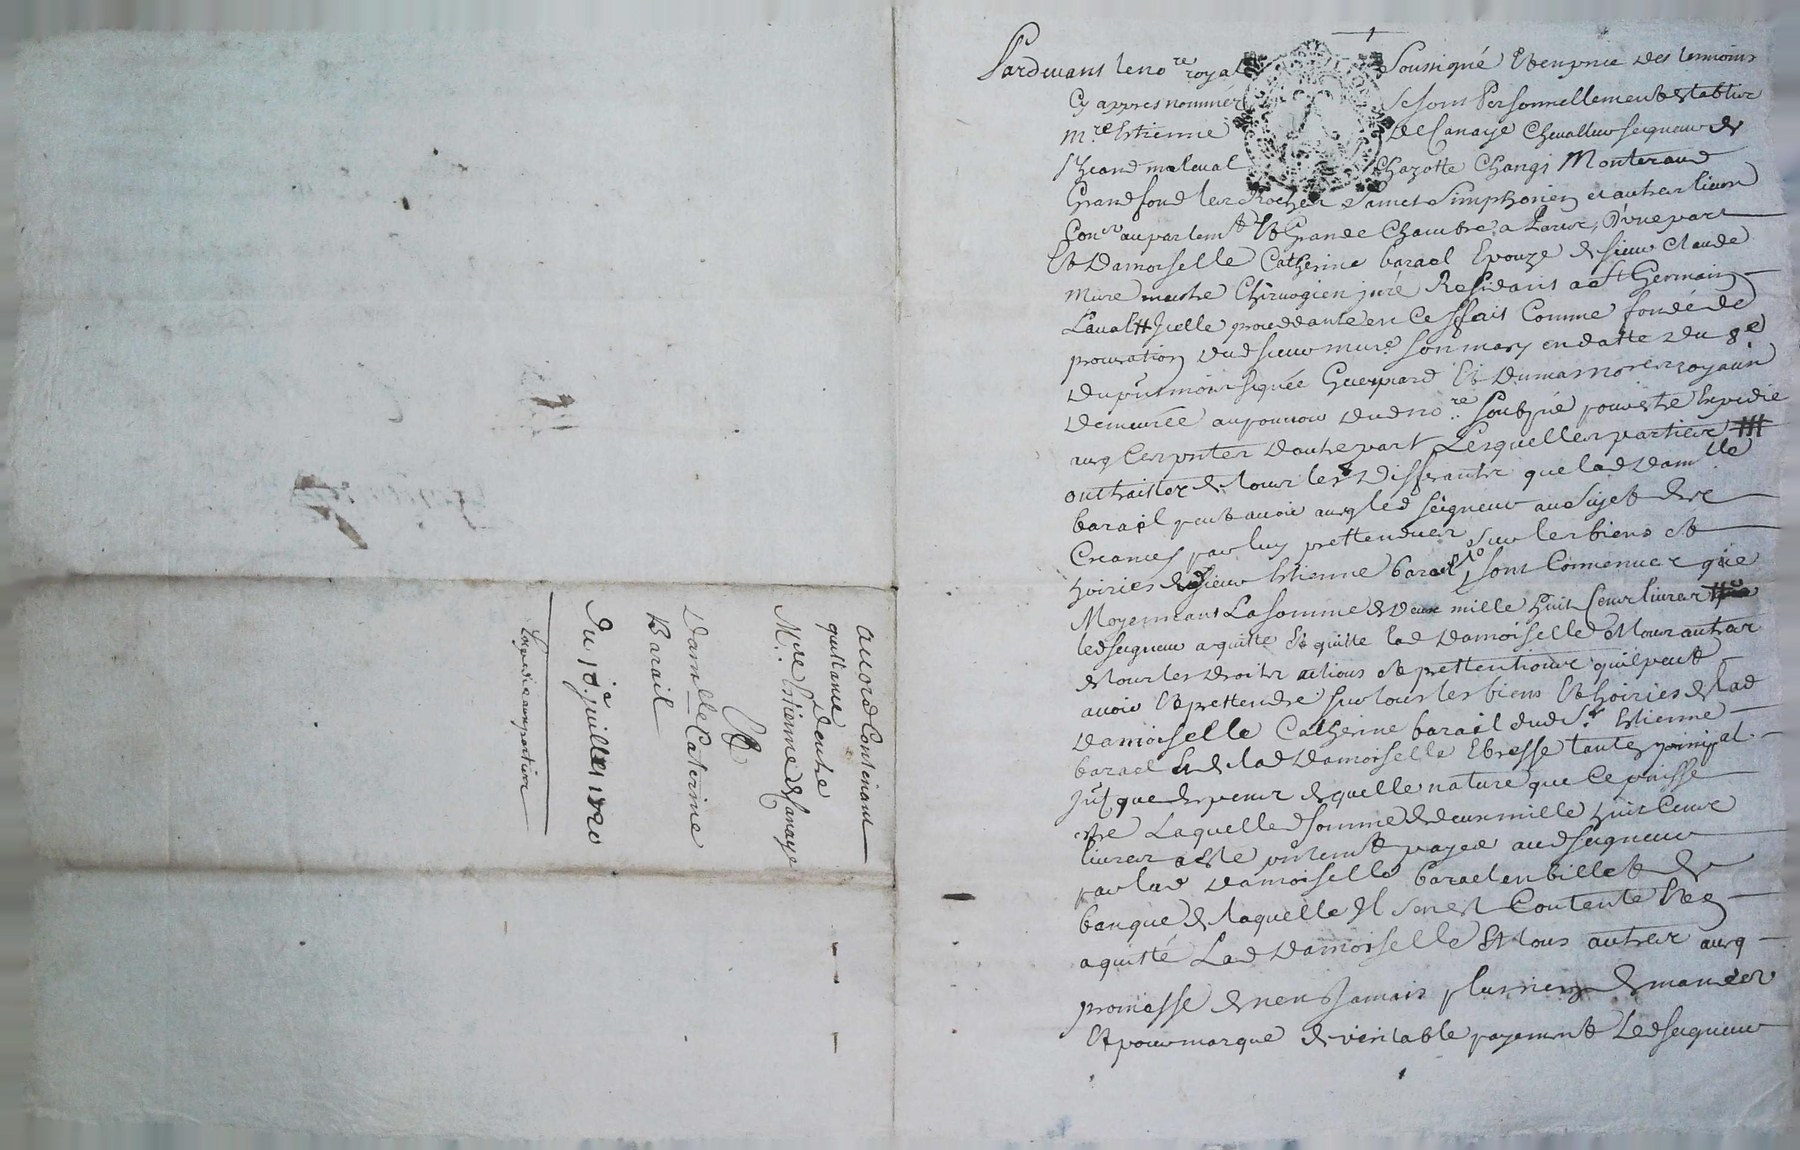 Pardevant le no.re royal Soussigné Et en pnce des temoins
Cy appres nommés se sont Personnellement establir
M.re Estienne De Canaye Chevallier seigneur de
malcual Chazotte Changi Monteraud
Grandfond les Roches Sainct Simphorien et autres lieux
Con.er au parlem.t Et Grande Chambre a Paris, D'une part
Et Damoiselle Catherine barael Epouze de sieur Claude
Mure maistre Chirurgien juré Residant a St Germain
Laval Icelle proceddante en Ce fait Comme fondée de
procuration dud sieur mure son mary en datte du 8.e
du pnt mois signée Et Dumas no.res royaux
demeurée au pouvoir dud no.re soubsné pour estre Expedie
avec Ces pntes d'autre part Lesquelles parties
ont traister de tous les Differantz que lad Dam.lle
barail peut avoir avec led seigneur au sujet des
Creances par luy prettendues sur les biens et
hoiries de sieur Estienne barail sont Convenues que
Moyennant La somme de deux mille huit Cens livres
led seigneur a quitte Et quitte lad Damoiselle Et tous autres
de tous les droitz actions et prettentions quil peut
avoir Et prettendre sur tous les biens Et hoiries de lad
Damoiselle Catherine barail dud S.r Estienne
barael Et de lad Damoiselle Ebresse tant en principal
que despens de quelle nature que Ce puisse
estre Laquelle somme de deux mille huit Cens
livres a Esté pntem.t payée aud seigneur
par lad Damoiselle barael en billet de
banque de laquelle Il s'en est Contenté Et en
a quitté Lad Damoiselle Et tous autres avec
promesse de n'en Jamais plus rien demander
Et pour marque de veritable payement Led seigneur
accord Contenant
quittance Dentre
M.re Estienne de Canaye
Et
Dam.lle Caterine
Barail
Du 18.e juillet 1720
Expedie aux parties